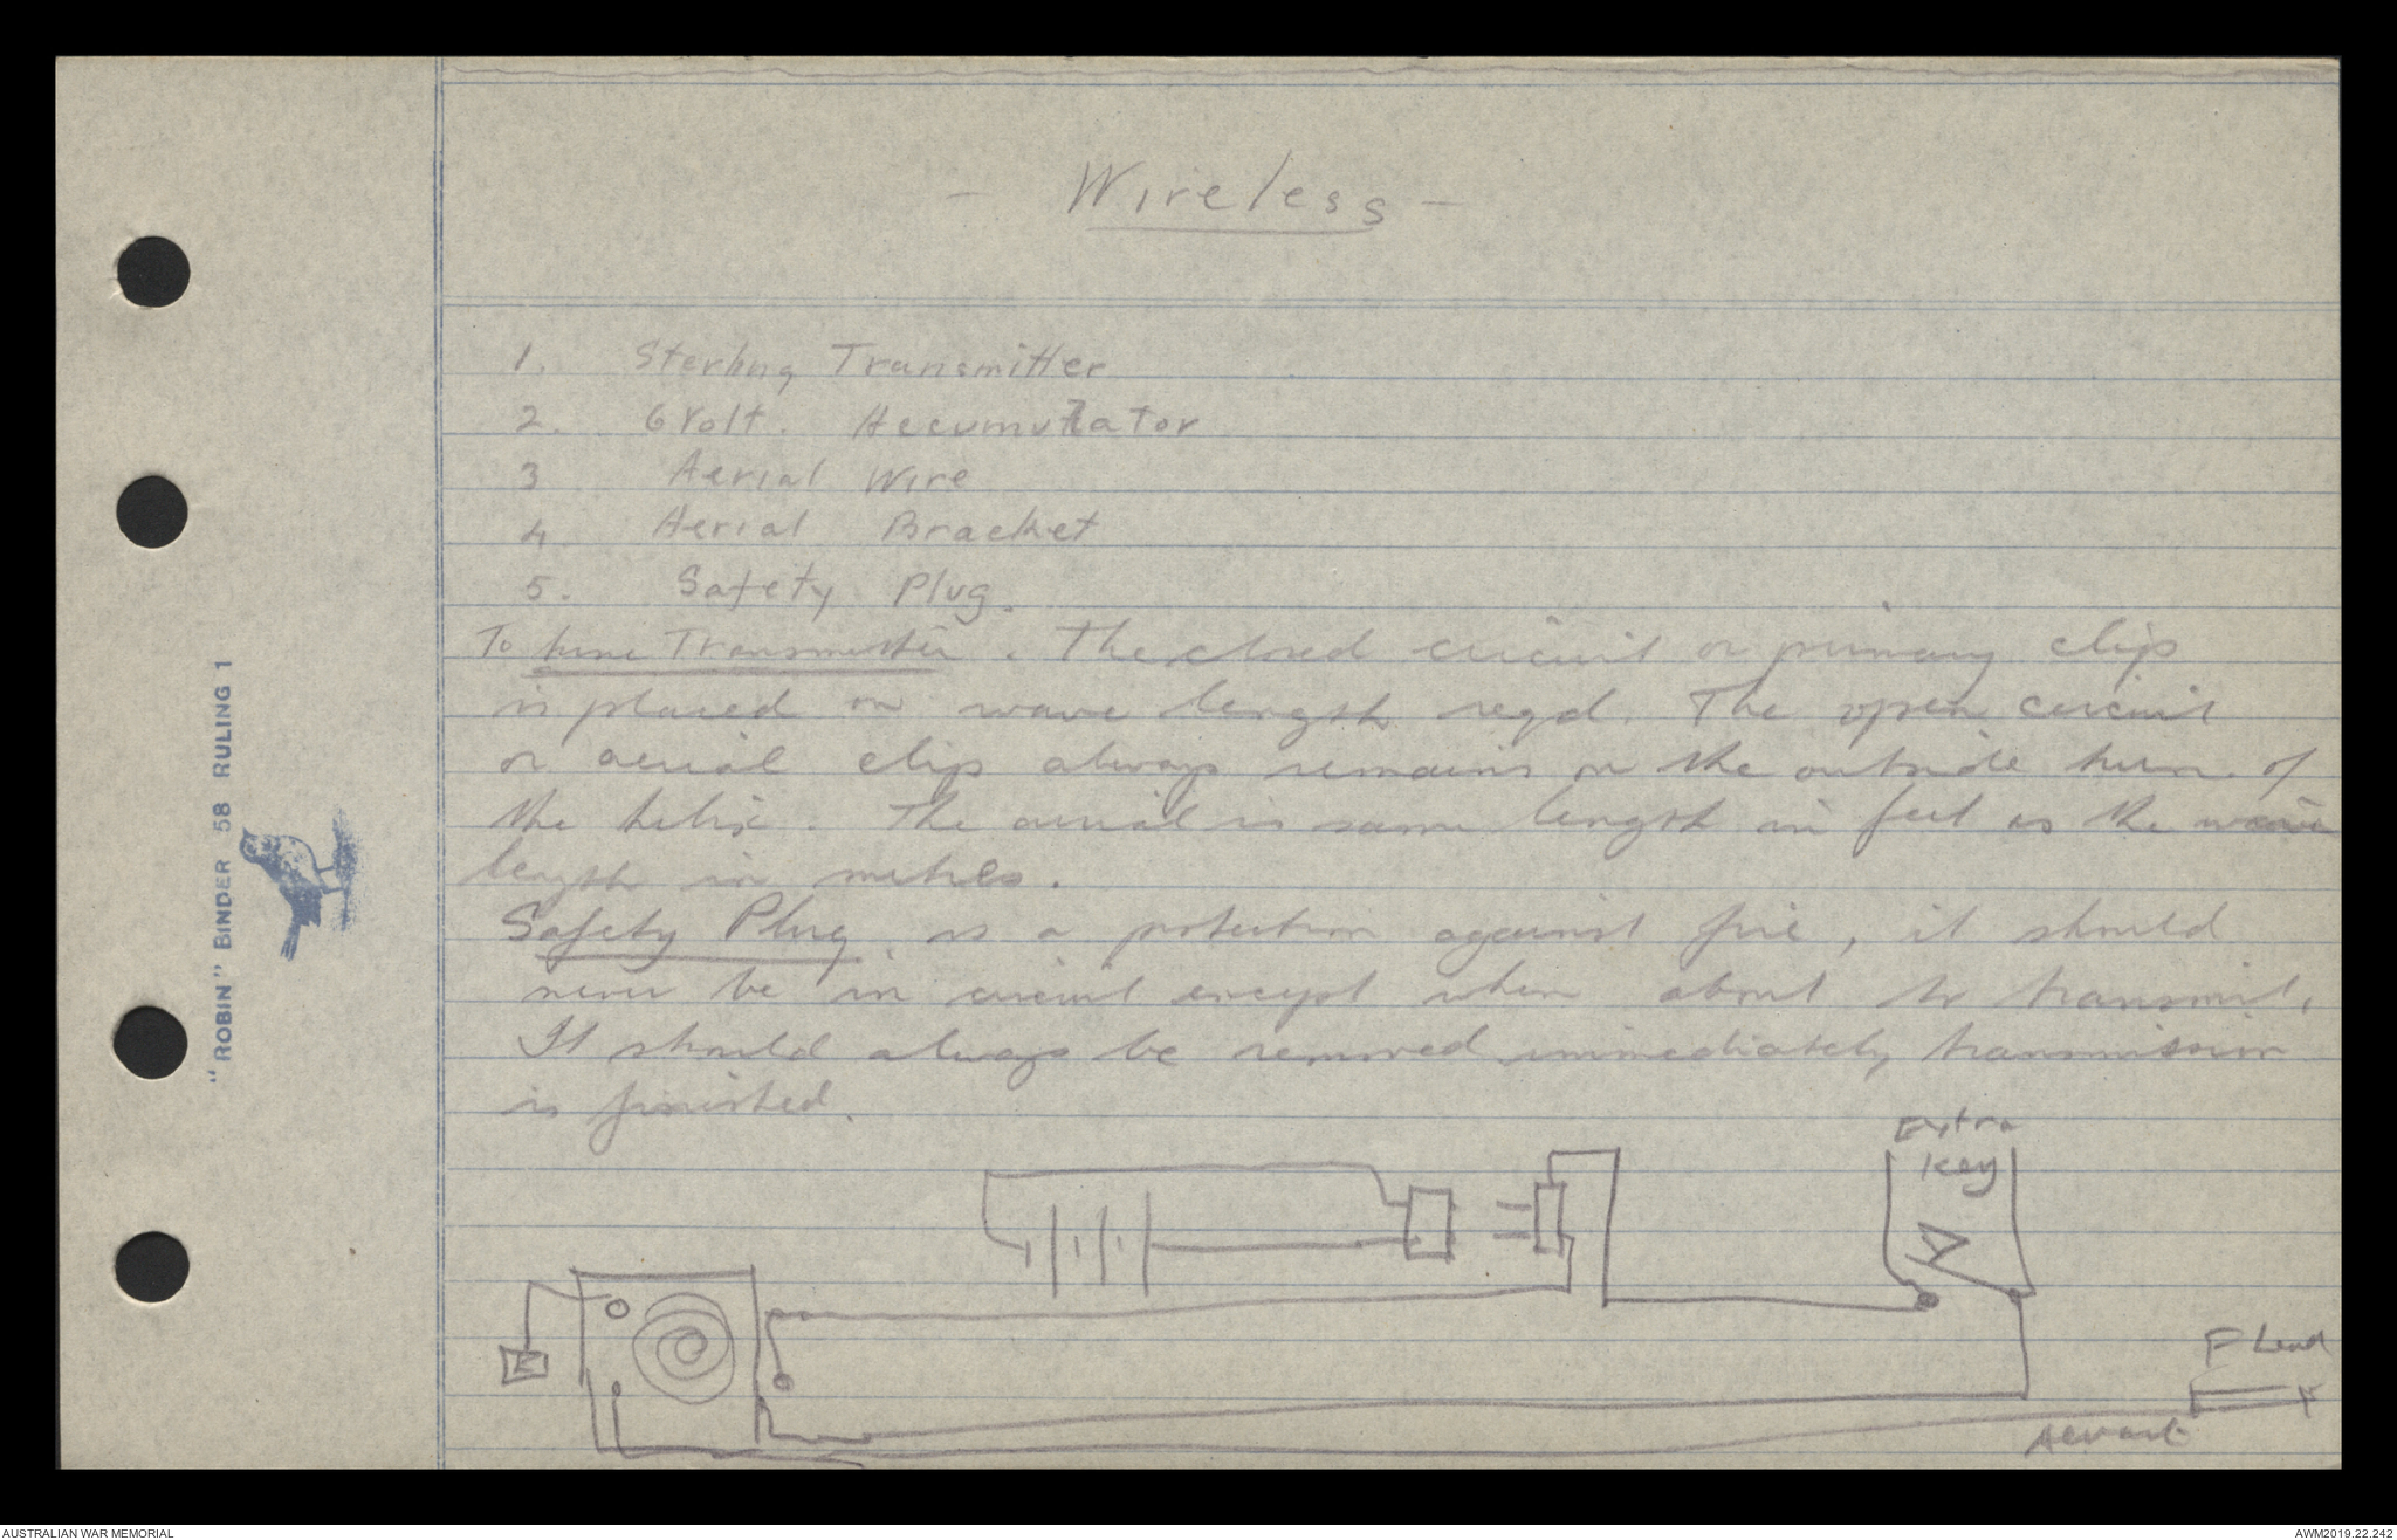 - Wireless -
1. Sterling Transmitter
2. 6 Volt. Accumulator
3 Aerial Wire
4 Aerial Bracket
5. Safety Plug.
To tune Transmitter. The closed circuit or primary clip
is placed on wave length reqd. The open circuit
or aerial clip always remains on the outside turn of
the helix. The aerial is same length in feet as the wave
length in metres.
Safety Plug. as a protection against fire, it should
never be in circuit except when about to transmit.
It should always be removed immediately transmission
is finished.
Extra
Key
E
Lead
"ROBIN" BINDER 58 RULING 1
AUSTRALIAN WAR MEMORIAL
AWM2019.22.242